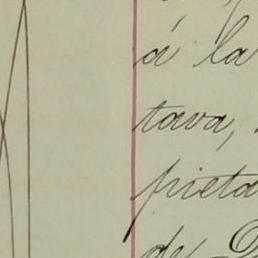 á la
tava,
pieta
de